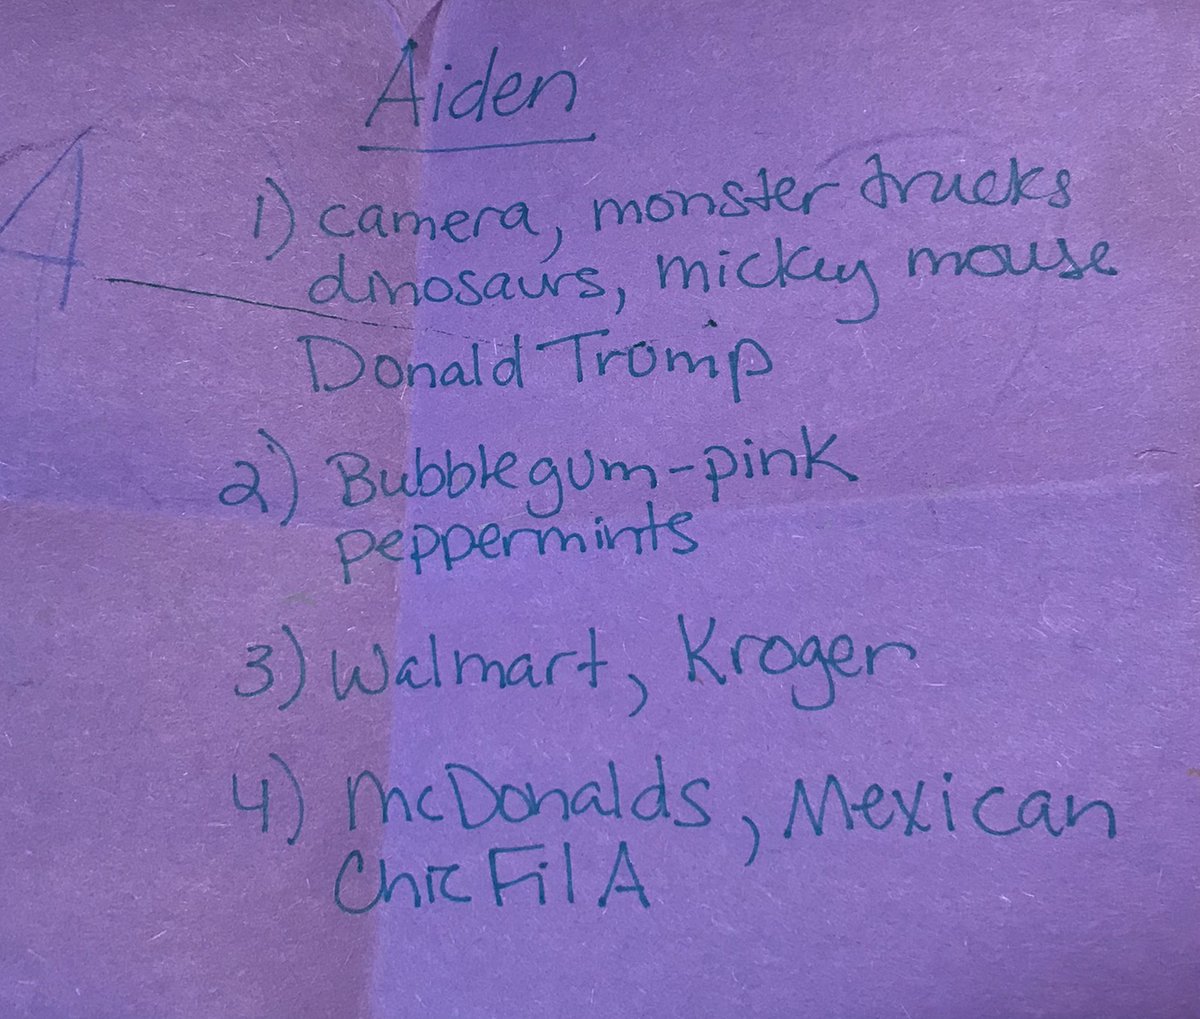 Aiden
A
1) camera, monster trucks
dinosaurs, mickey mouse
Donald Tromp
2) Bubblegum-pink
peppermints
3) Walmart, Kroger
4) McDonalds, Mexican
Chic Fil A